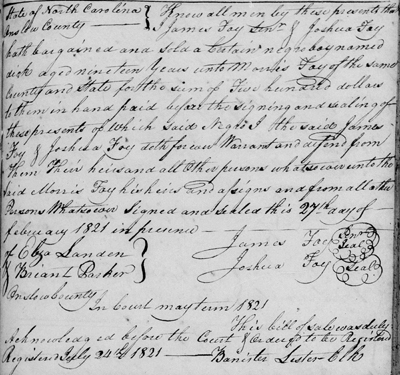 State of North Carolina } Know all men by these presents that
Onslow County } James Foy Senr. & Joshua Foy
hath bargained and sold a certain negro boy named
dick aged nineteen years unto Morris Foy of the same
County and State for the sum of Five hundred dollars
to them in hand paid before the signing and sealing of
these presents of Which said Negro I the said James
Foy & Joshua Foy doth forever Warrant and defend from
them Their heirs and all Other persons whatsoever unto the
said Morris Foy his heirs and assigns and from all other
Persons Whatsoever Signed and sealed this 27th day of
february 1821 in presence
of Elza Landen } James Foy Senr Seal
& Briant Parker } Joshua Foy Seal
Onslow County
In Court may term 1821
This bill of sale was duly
Acknowledged before the Court & Ordered to be Registered
Registered July 24th 1821 — Banister Lester Clk